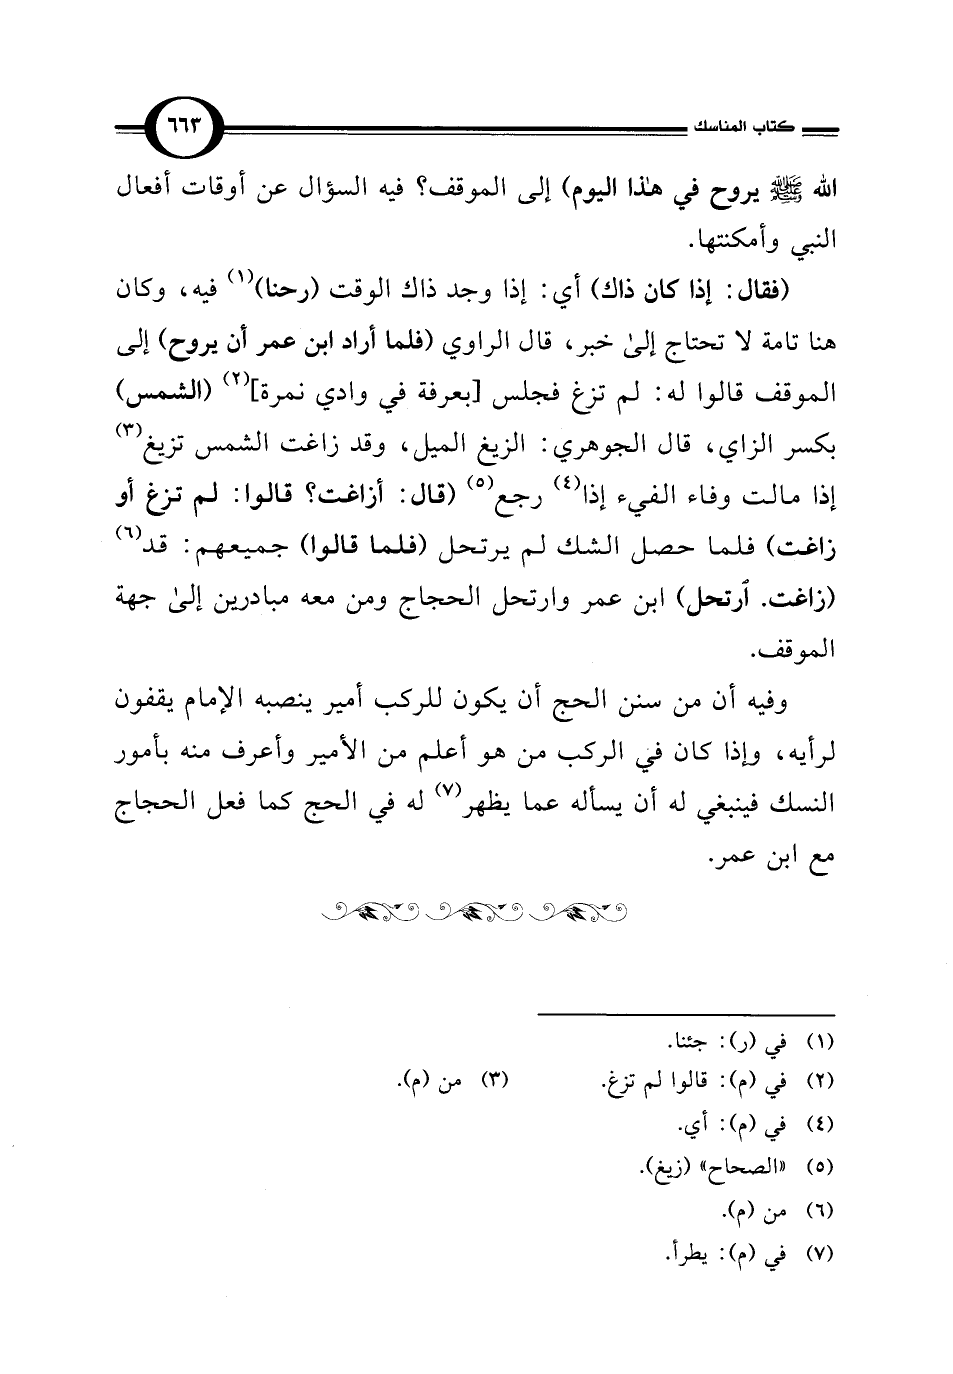 كتاب المناسك ٦٦٣
الله ﷺ يروح في هذا اليوم) إلى الموقف؟ فيه السؤال عن أوقات أفعال
النبي وأمكنتها.
(فقال: إذا كان ذاك) أي: إذا وجد ذاك الوقت (رحنا)(١) فيه، وكان
هنا تامة لا تحتاج إلىٰ خبر، قال الراوي (فلما أراد ابن عمر أن يروح) إلى
الموقف قالوا له: لم تزغ فجلس [بعرفة في وادي نمرة](٢) (الشمس)
بكسر الزاي، قال الجوهري: الزيغ الميل، وقد زاغت الشمس تزيغ(٣)
إذا مالت وفاء الفيء إذا(٤) رجع(٥) (قال: أزاغت؟ قالوا: لم تزغ أو
زاغت) فلما حصل الشك لم يرتحل (فلما قالوا) جميعهم: قد(٦)
(زاغت. ٱرتحل) ابن عمر وارتحل الحجاج ومن معه مبادرين إلىٰ جهة
الموقف.
وفيه أن من سنن الحج أن يكون للركب أمير ينصبه الإمام يقفون
لرأيه، وإذا كان في الركب من هو أعلم من الأمير وأعرف منه بأمور
النسك فينبغي له أن يسأله عما يظهر(٧) له في الحج كما فعل الحجاج
مع ابن عمر.
(١) في (ر): جئنا.
(٢) في (م): قالوا لم تزغ. (٣) من (م).
(٤) في (م): أي.
(٥) «الصحاح» (زيغ).
(٦) من (م).
(٧) في (م): يطرأ.